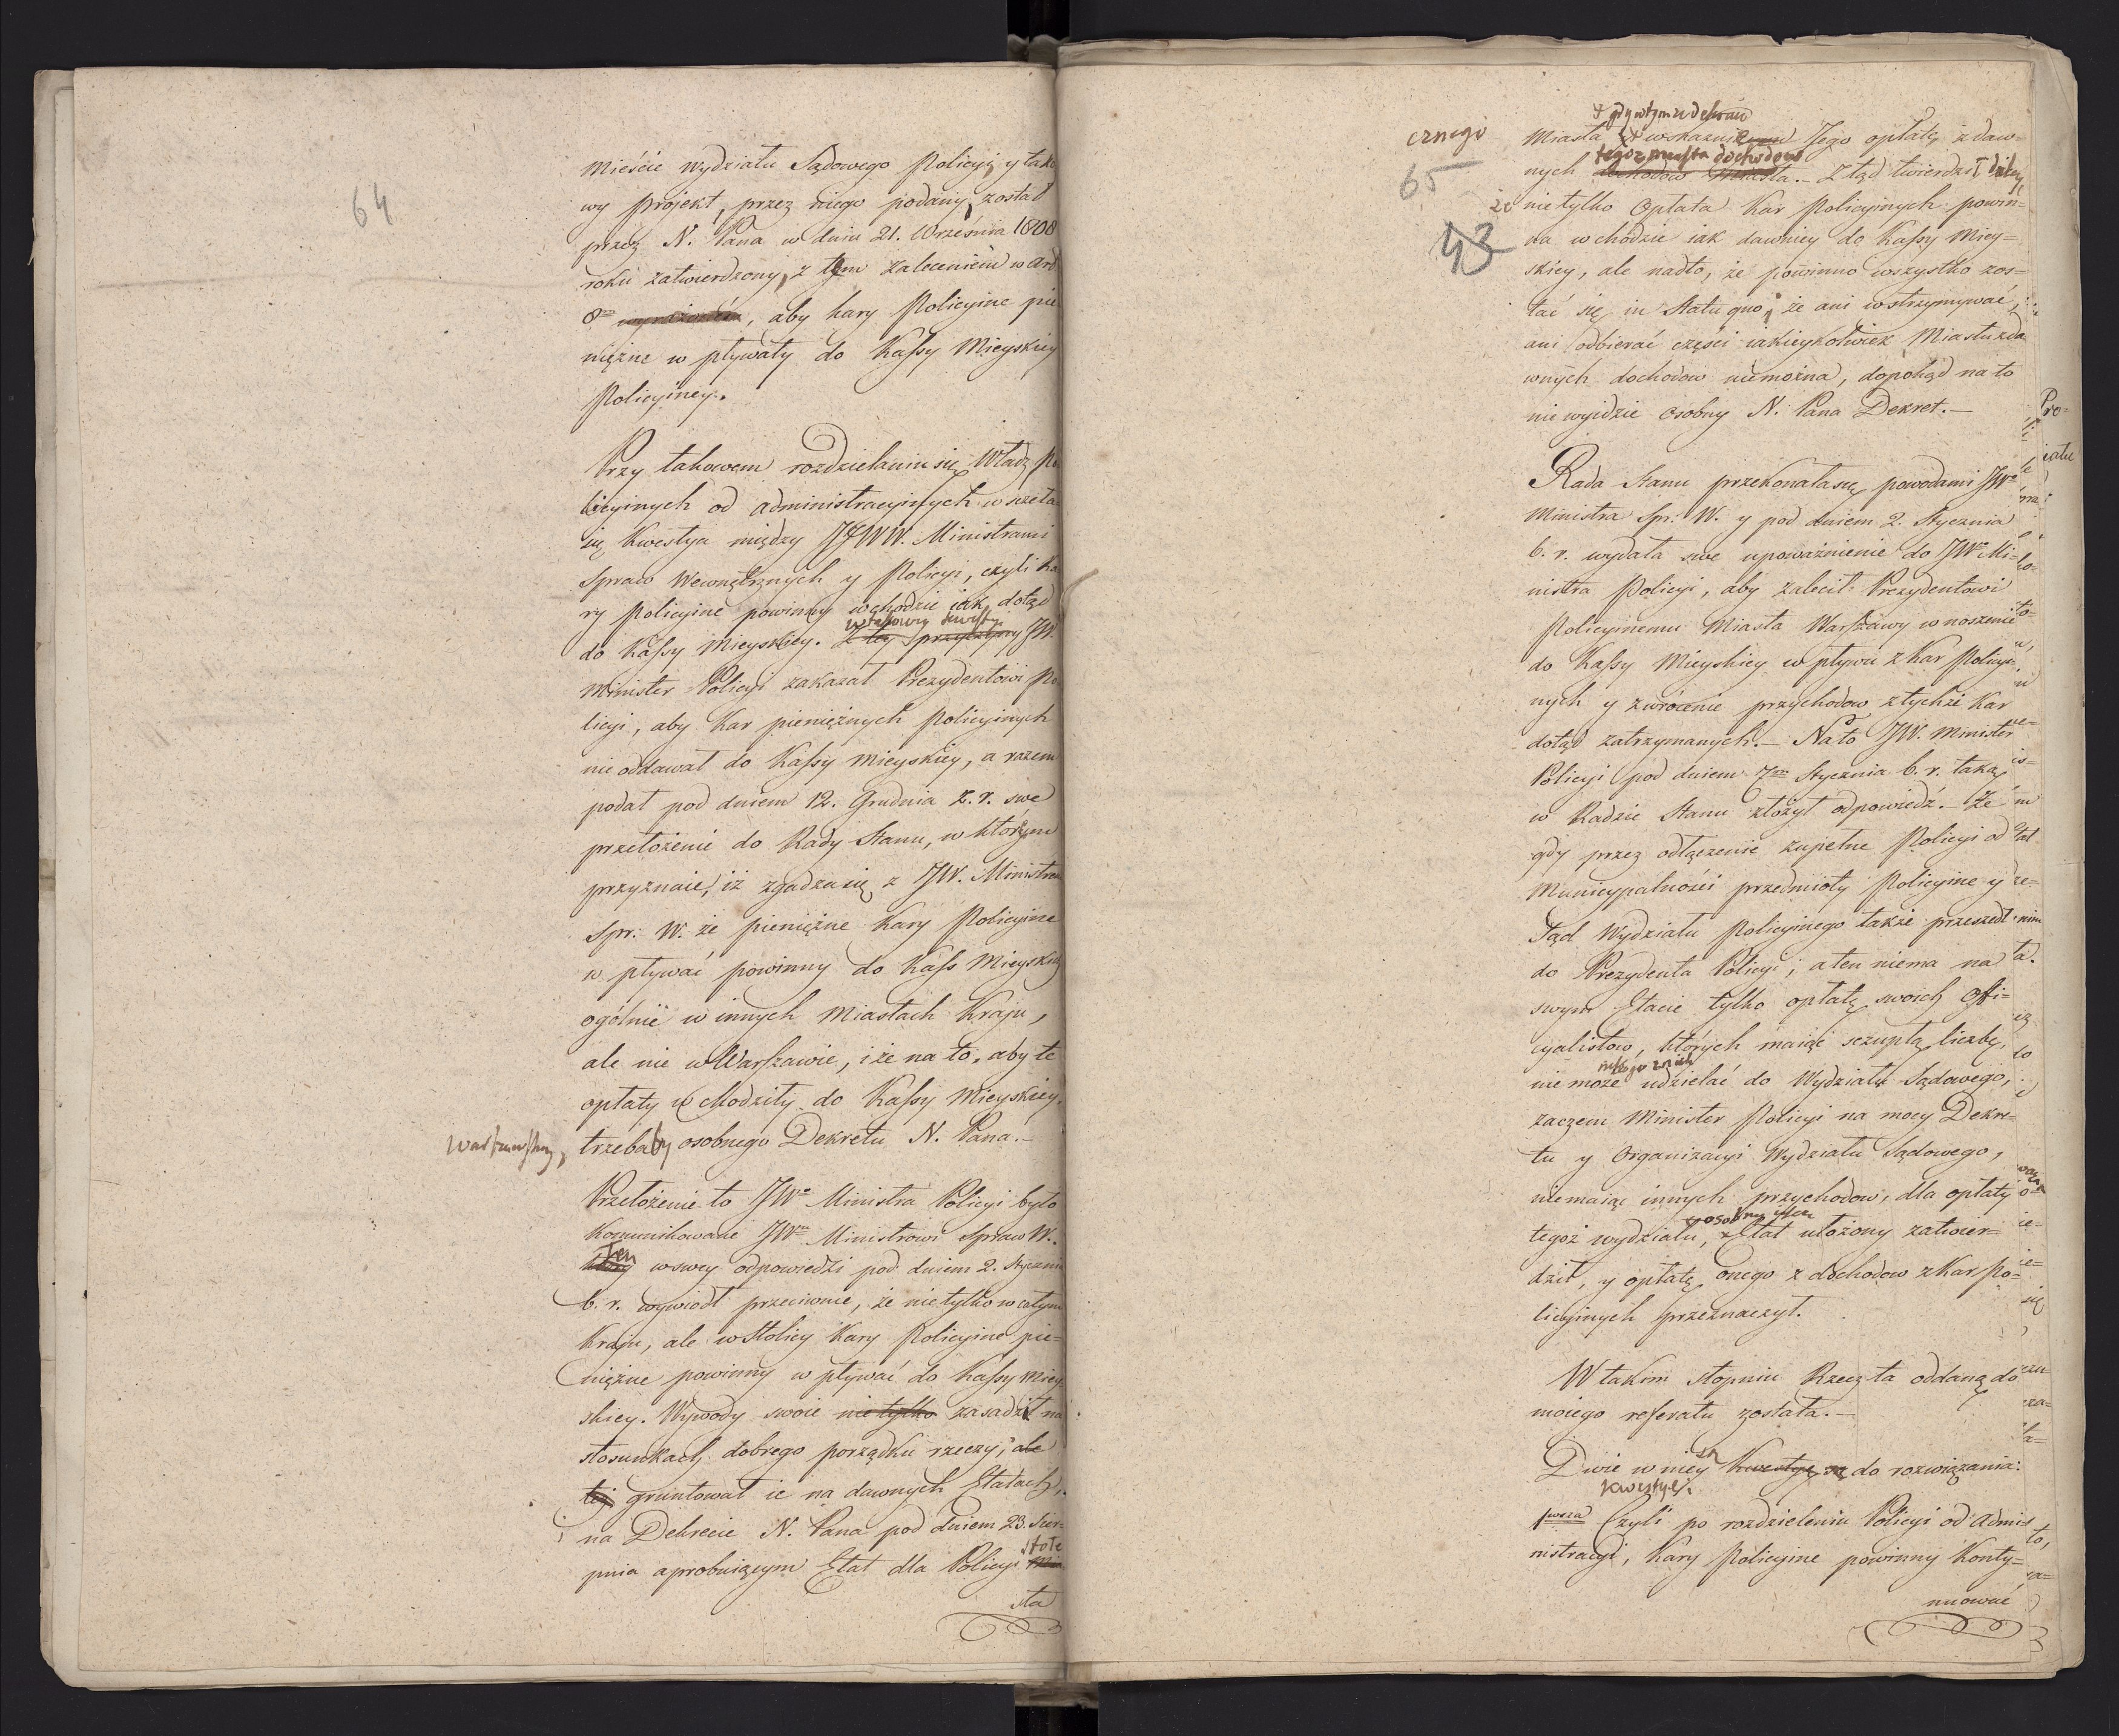 64
mieście Wydziału Sądowego Policyi, y tako
wy projekt, przez niego podany, został
przez N. Pana w dniu 21. Września 1808
roku zatwierdzony, z tym zaleceniem w art
8m, aby kary Policyine pie
niężne w pływały do Kassy Mieyskiey
Policyiney.
Przy takowem rozdzielaniu się Władz Po
licyinych od administracyinych wszczęła
się Kwestya między JJWW. Ministrami
Spraw Wewnętrznych y Policyi, czyli Ka
ry Policyine powinny wchodzić iak dotąd
w takowey kwestyi
do Kassy Mieyskiey. Z tey przyczyny JW.
Minister Policyi zakazał Prezydentowi Po
licyi, aby Kar pieniężnych Policyinych
nie oddawał do Kassy mieyskiey, a razem
podał pod dniem 12. Grudnia z. r. swe
przełożenie do Rady Stanu, w którym
przyznaie, iż zgadza się z JW. Ministrem
Spr. W. że pieniężne Kary Policyine
w pływać powinny do Kass Mieyskich
ogólnie w innych Miastach Kraju,
ale nie w Warszawie, i że na to, aby te
opłaty wchodziły do Kassy Mieyskiey
Warszawskiey, trzebaby osobnego Dekretu N. Pana.—
Przełożenie to JWo Ministra Policyi było
Komunikowane JWmu Ministrowi Spraw W.
Ten
który wswey odpowiedzi pod dniem 2. Stycznia
b. r. wywiódł przeciwnie, że nie tylko w całym
Kraju, ale w Stolicy Kary Policyine pie=
niężne powinny w pływać do Kassy Miey
skiey. Wywody swoie nie tylko zasadził na
stosunkach dobrego porządku rzeczy, ale
też gruntował ie na dawnych Etatach,
i na Dekrecie N. Pana pod dniem 23. Sier=
stołe
pnia aprobuiącym Etat dla Policyi Mia
sta
65
43
+ gdy w tymże dekrecie
Miasta + wskazuie Jego opłatę z daw=
tegoż miasta dochodów
nych dochodów Miasta.— Ztąd twierdził daley
że nie tylko Opłata Kar Policyinych powin=
na wchodzić iak dawniey do Kassy Miey=
skiey, ale nadto, że powinno wszystko zos=
tać się in Statu quo, że ani wstrzymywać,
ani odbierać części iakieykolwiek Miastu z da
wnych dochodow niemożna, dopokąd na to
nie wyidzie Osobny N. Pana Dekret.—
Rada Stanu przekonała się powodami JWo
Ministra Spr. W. y pod dniem 2. Stycznia
b. r. wydała swe upoważnienie do JWo Mi=
nistra Policyi, aby zalecił Prezydentowi
Policyinemu Miasta Warszawy wnoszenie
do Kassy Mieyskiey wpływu z Kar Policyi=
nych y zwrócenie przychodow z tychże Kar
dotąd zatrzymanych.— Na to JW. Minister
Policyi pod dniem 7m Stycznia b. r. taką
w Radzie Stanu złożył odpowiedź.— Że
gdy przez odłączenie zupełne Policyi od
Municypalności przedmioty Policyine y
Sąd Wydziału Policyinego także przeszedł
do Prezydenta Policyi, a ten niema na
swym Etacie tylko opłatę swoich Offi=
cyalistow, których maiąc szczupłą liczbę,
nikogo z nich
nie może udzielać do Wydziału Sądowego,
zaczem Minister Policyi na mocy Dekre=
tu y Organizacyi Wydziału Sądowego,
niemaiąc innych przychodow, dla opłaty
tegoż wydziału, Etat ułożony zatwier=
dził, y opłatę onego z dochodow z Kar Po=
licyinych przeznaczył.
W takim stopniu Rzecz ta oddaną do
moiego referatu została.—
są
Dwie w niey Kwestye są do rozwiązania:
Kwestye.
1wsza Czyli po rozdzieleniu Policyi od Admi=
nistracyi, Kary Policyine powinny Konty=
nuować